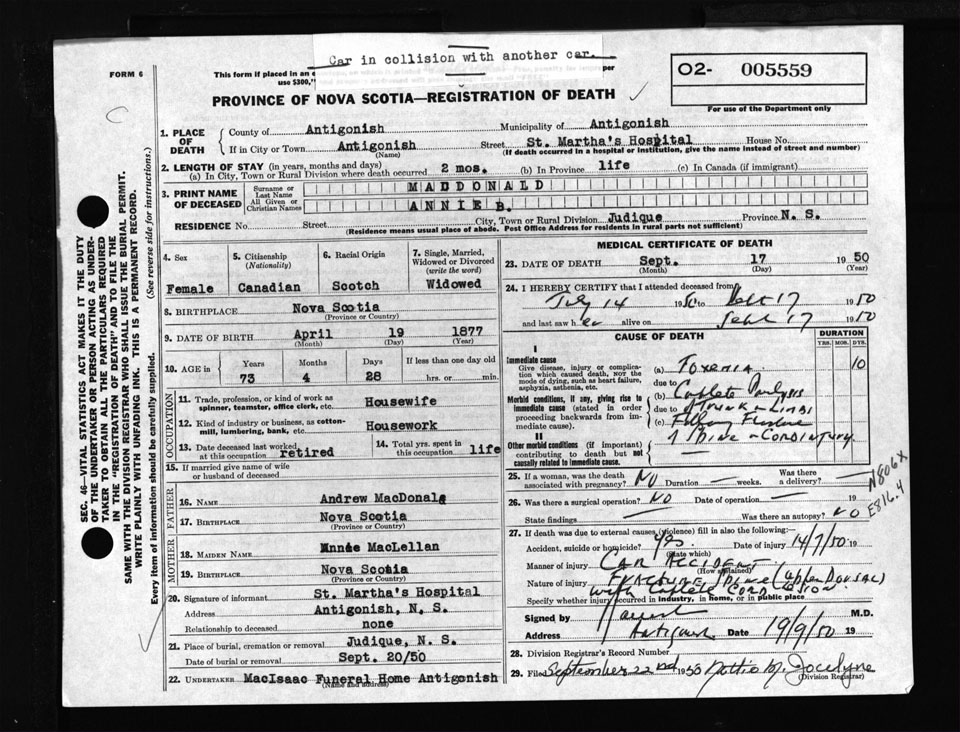 Car in collision with another car.
FORM 6
This form if placed in an e
per
use $300,"
O2- 005559
PROVINCE OF NOVA SCOTIA—REGISTRATION OF DEATH
For use of the Department only
1. PLACE OF DEATH
County of Antigonish Municipality of Antigonish
If in City or Town Antigonish Street St. Martha's Hospital House No.
(Name) (If death occurred in a hospital or institution, give the name instead of street and number)
2. LENGTH OF STAY (in years, months and days)
(a) In City, Town or Rural Division where death occurred 2 mos. (b) In Province life (c) In Canada (if immigrant)
3. PRINT NAME OF DECEASED
Surname or Last Name MACDONALD
All Given or Christian Names ANNIE B.
RESIDENCE No. Street City, Town or Rural Division Judique Province N. S.
(Residence means usual place of abode. Post Office Address for residents in rural parts not sufficient)
4. Sex Female
5. Citizenship (Nationality) Canadian
6. Racial Origin Scotch
7. Single, Married, Widowed or Divorced (write the word) Widowed
8. BIRTHPLACE Nova Scotia
(Province or Country)
9. DATE OF BIRTH April 19 1877
(Month) (Day) (Year)
10. AGE in Years Months Days If less than one day old
73 4 28 hrs. or min.
OCCUPATION
11. Trade, profession or kind of work as spinner, teamster, office clerk, etc. Housewife
12. Kind of industry or business, as cotton-mill, lumbering, bank, etc. Housework
13. Date deceased last worked at this occupation retired
14. Total yrs. spent in this occupation life
15. If married give name of wife or husband of deceased
FATHER
16. NAME Andrew MacDonald
17. BIRTHPLACE Nova Scotia
(Province or Country)
MOTHER
18. MAIDEN NAME Annie MacLellan
19. BIRTHPLACE Nova Scotia
(Province or Country)
20. Signature of informant St. Martha's Hospital
Address Antigonish, N. S.
Relationship to deceased none
21. Place of burial, cremation or removal Judique, N. S.
Date of burial or removal Sept. 20/50
22. UNDERTAKER MacIsaac Funeral Home Antigonish
(Name and address)
MEDICAL CERTIFICATE OF DEATH
23. DATE OF DEATH Sept. 17 1950
(Month) (Day) (Year)
24. I HEREBY CERTIFY that I attended deceased from
July 14 1950 to Sept 17 1950
and last saw her alive on Sept 17 1950
CAUSE OF DEATH
DURATION
YRS. MOS. DYS.
I
Immediate cause
Give disease, injury or complication which caused death, not the mode of dying, such as heart failure, asphyxia, asthenia, etc.
(a) Toxemia 10
due to
Morbid conditions, if any, giving rise to immediate cause (stated in order proceeding backwards from immediate cause).
(b) Complete Paralysis
due to Trunk & Limbs
(c)
Spine & Cord injury
II
Other morbid conditions (if important) contributing to death but not causally related to immediate cause.
25. If a woman, was the death associated with pregnancy? No Duration — weeks. Was there a delivery? —
26. Was there a surgical operation? No Date of operation — 19
State findings — Was there an autopsy? No
N806X
E816.4
27. If death was due to external causes (violence) fill in also the following:
Accident, suicide or homicide? yes Date of injury 14/7/50 19
(State which)
Manner of injury CAR ACCIDENT
(How sustained)
Nature of injury FRACTURE SPINE (UPPER DORSAL)
with Complete CORD LESION
Specify whether injury occurred in industry, in home, or in public place
Signed by M.D.
Address Antigonish Date 19/9/50 19
28. Division Registrar's Record Number
29. Filed September 22nd 1950 Nottie M. Jocelyne
(Division Registrar)
SEC. 46—VITAL STATISTICS ACT MAKES IT THE DUTY
OF THE UNDERTAKER OR PERSON ACTING AS UNDER-
TAKER TO OBTAIN ALL THE PARTICULARS REQUIRED
IN THE "REGISTRATION OF DEATH" AND TO FILE THE
SAME WITH THE DIVISION REGISTRAR WHO SHALL ISSUE THE BURIAL PERMIT.
WRITE PLAINLY WITH UNFADING INK. THIS IS A PERMANENT RECORD.
Every item of information should be carefully supplied. (See reverse side for instructions.)